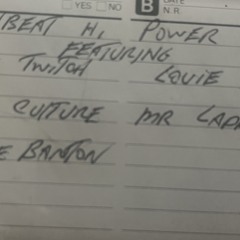 YES NO B DATE
N.R.
BEAT H, POWER
FEATURING
TWITCH LOUIE
CULTURE MR LAP
E BANTON